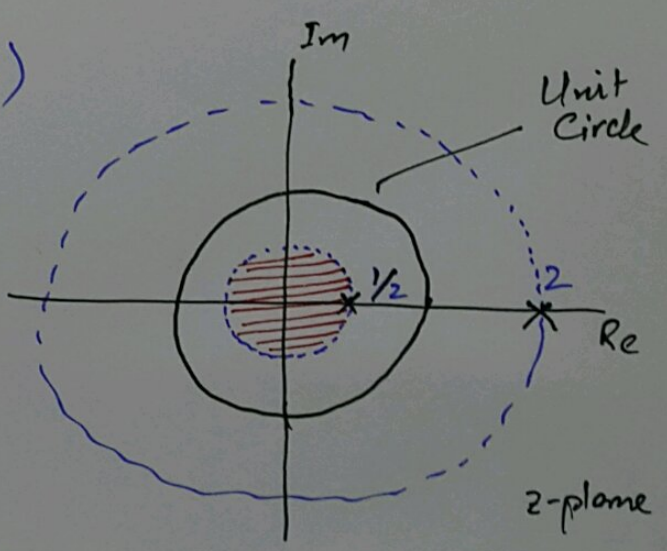 )
Im
Unit
Circle
1/2
2
Re
z-plane